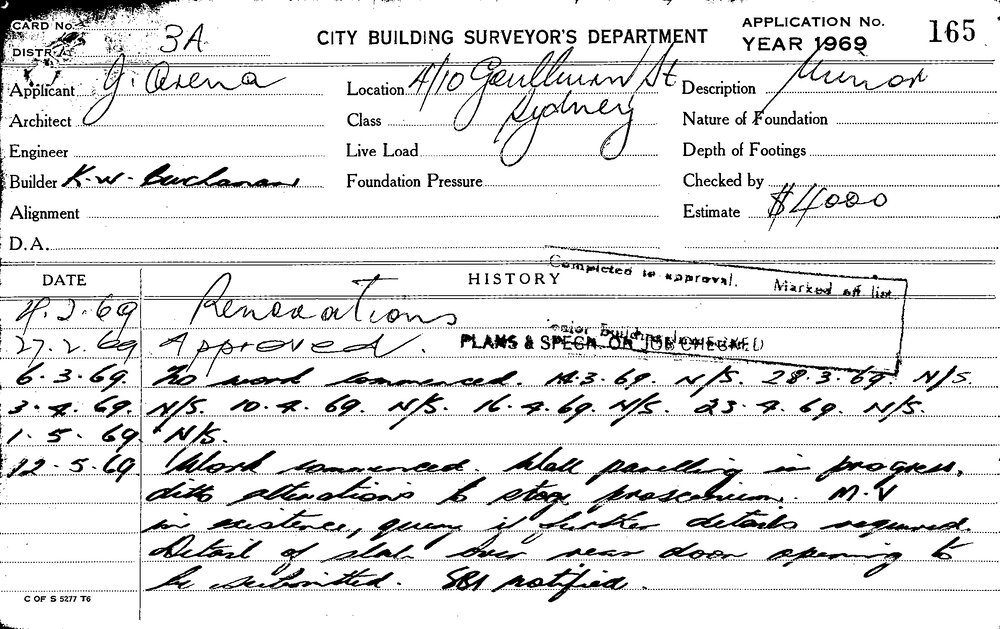 CARD No.
DISTR. 3A
CITY BUILDING SURVEYOR'S DEPARTMENT
APPLICATION No.
YEAR 1969
165
Applicant J. Arena
Location 4/10 Goulburn St
Sydney
Description Minor
Architect
Class
Nature of Foundation
Engineer
Live Load
Depth of Footings
Builder K.W. Buchanan
Foundation Pressure
Checked by
Alignment
Estimate $4000
D.A.
DATE
HISTORY
Completed to approval. Marked off list
4.2.69 Renovations
27.2.69 Approved.
PLANS & SPECN. ON JOB CHECKED
6.3.69. No work commenced. 14.3.69. N/S. 28.3.69 N/S.
3.4.69. N/S. 10.4.69. N/S. 16.4.69. N/S. 23.4.69. N/S.
1.5.69. N/S.
12.5.69 Work commenced. Wall panelling in progress,
ditto alterations to stage proscenium. M.V
in existence, query if further details required.
Detail of slab over rear door opening to
be submitted. SBI notified.
C OF S 5277 T6